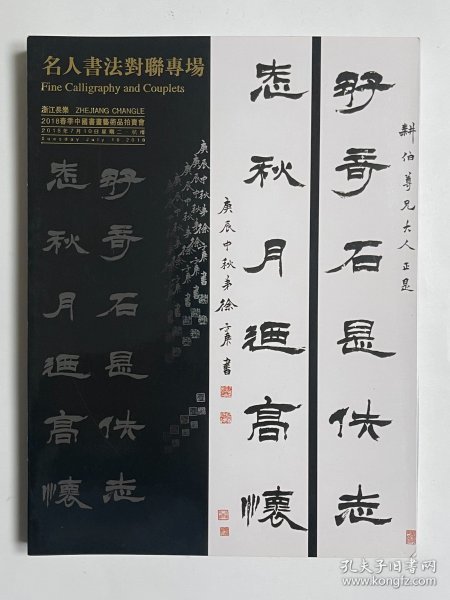 名人書法對聯專場
Fine Calligraphy and Couplets
浙江長樂 ZHEJIANG CHANGLE
2018春季中國書畫藝術品拍賣會
2018年7月10日星期二 杭州
July 10 2018
耕伯尊兄大人正是
奇石是佚志
秋月迥高懷
庚辰中秋弟徐三庚書
奇石是佚志
秋月迥高懷
庚辰中秋弟徐三庚書
孔夫子旧书网
kongfz.com